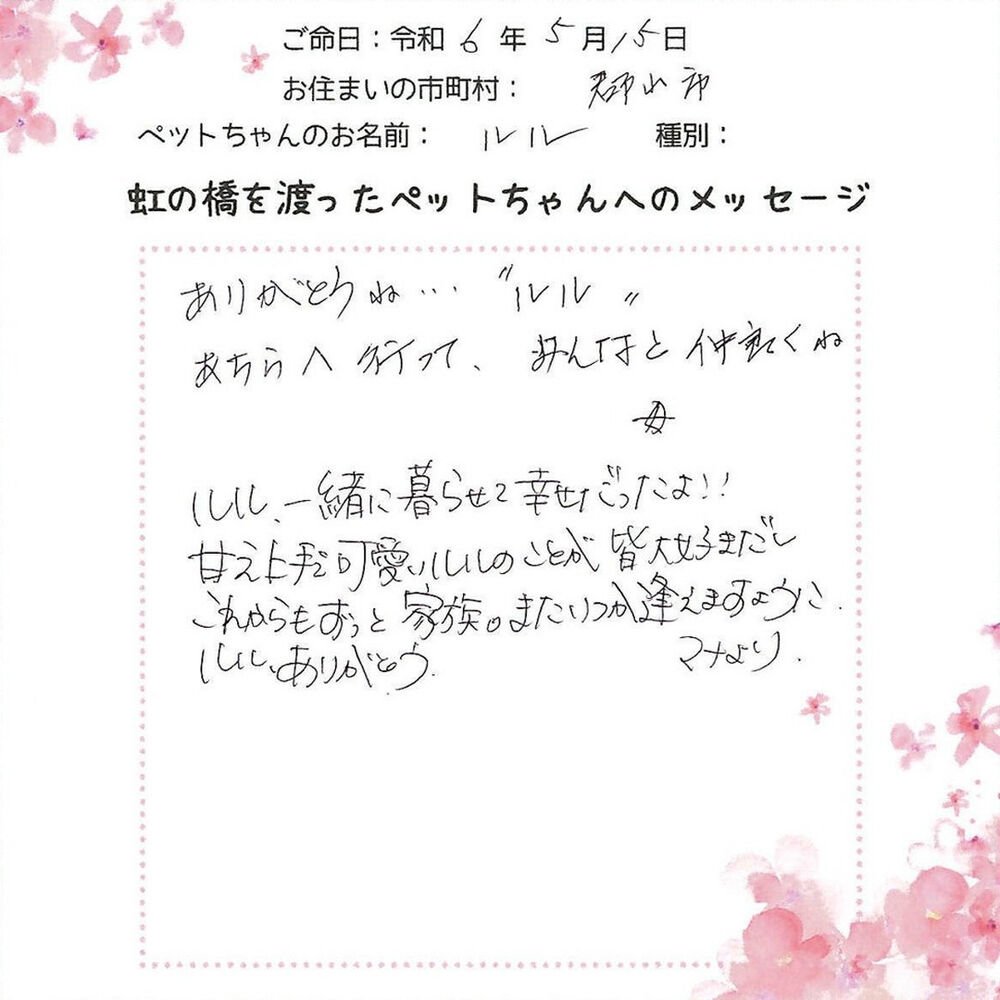 ご命日：令和 6 年 5 月 15 日
お住まいの市町村： 郡山市
ペットちゃんのお名前： ルル 種別：
虹の橋を渡ったペットちゃんへのメッセージ
ありがとうね… 〝ルル〟
あちらへ行って、みんなと仲良くね
母
ルル、一緒に暮らせて幸せだったよ!!
甘え上手で可愛いルルのことが皆大好きだし
これからもずっと家族。またいつか逢えますように.
ルル、ありがとう. マナより.